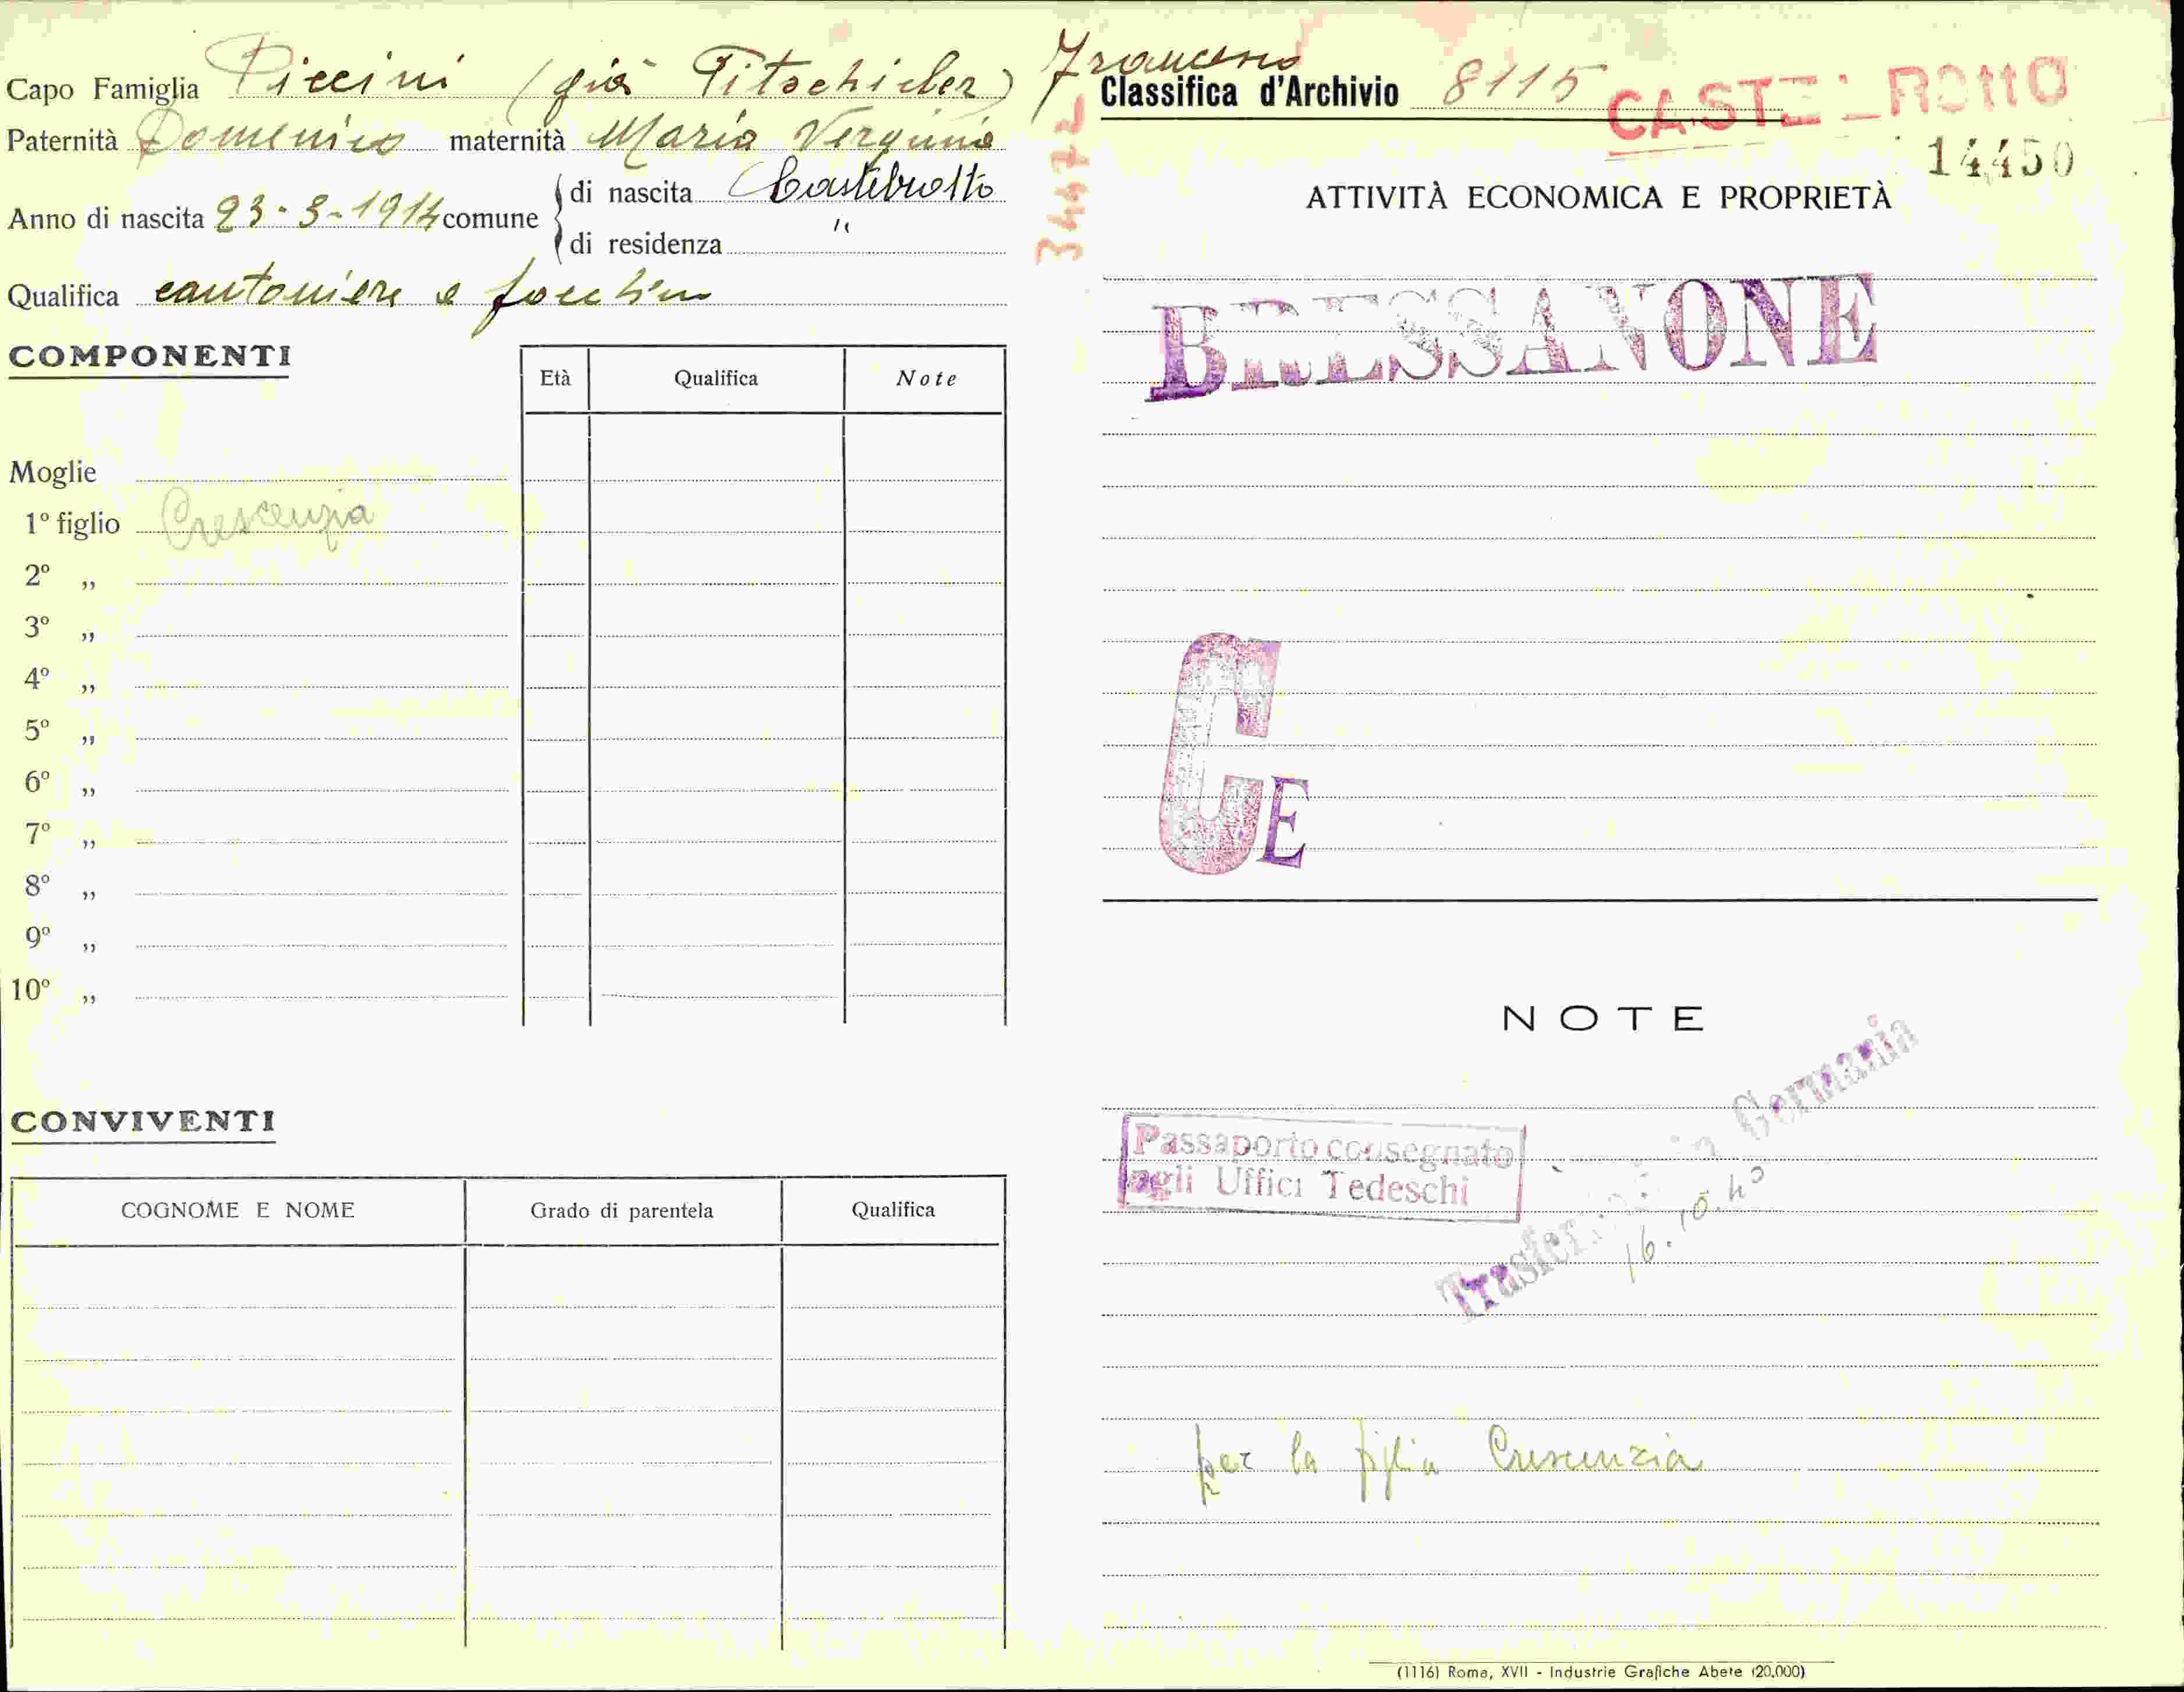 Capo Famiglia Piccini (già Pitschieler) Francesco
Paternità Domenico maternità Maria Verginia
Anno di nascita 23-3-1914 comune
di nascita Castelrotto
di residenza "
Qualifica cantoniere e
COMPONENTI
Età Qualifica Note
Moglie
1º figlio Crescenzia
2º „
3º „
4º „
5º „
6º „
7º „
8º „
9º „
10º „
CONVIVENTI
COGNOME E NOME Grado di parentela Qualifica
34472
Classifica d'Archivio 8115 CASTELROTTO
14450
ATTIVITÀ ECONOMICA E PROPRIETÀ
BRESSANONE
CE
NOTE
Passaporto consegnato
agli Uffici Tedeschi
in Germania
16.10.40
per la figlia Crescenzia
(1116) Roma, XVII - Industrie Grafiche Abete (20.000)